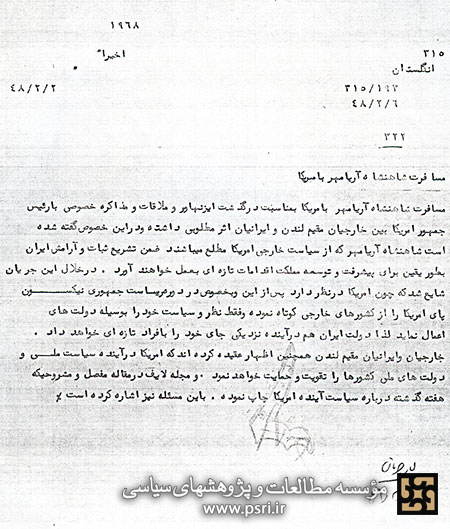 ۱۹۶۸
۳۱۵ اخیراً
انگلستان
۳۱۵/۱۹۳ ۴۸/۲/۲
۴۸/۲/۶
۳۲۲
مسافرت شاهنشاه آریامهر بامریکا
مسافرت شاهنشاه آریامهر بامریکا بمناسبت درگذشت ایزنهاور و ملاقات و مذاکره خصوصی بارئیس
جمهور امریکا بین خارجیان مقیم لندن و ایرانیان اثر مطلوبی داشته ودر این خصوص گفته شده
است شاهنشاه آریامهر که از سیاست خارجی امریکا مطلع میباشند ضمن تشریح ثبات و آرامش ایران
بطور یقین برای پیشرفت و توسعه مملکت اقدامات تازه ای بعمل خواهند آورد . درخلال این جریان
شایع شد که چون امریکا درنظر دارد پس از این وبخصوص در دوره ریاست جمهوری نیکسون
پای امریکا را از کشورهای خارجی کوتاه نموده وفقط نظر و سیاست خود را بوسیله دولت های
اعمال نماید لذا دولت ایران هم درآینده نزدیکی جای خود را بافراد تازه ای خواهد داد .
خارجیان وایرانیان مقیم لندن همچنین اظهار عقیده کرده اند که امریکا درآینده سیاست ملی و
دولت های ملی کشورها را تقویت و حمایت خواهد نمود . و مجله لایف در مقاله مفصل و مشروحیکه
هفته گذشته درباره سیاست آینده امریکا چاپ نموده . باین مسئله نیز اشاره کرده است %
مؤسسه مطالعات و پژوهشهای سیاسی
www.psri.ir